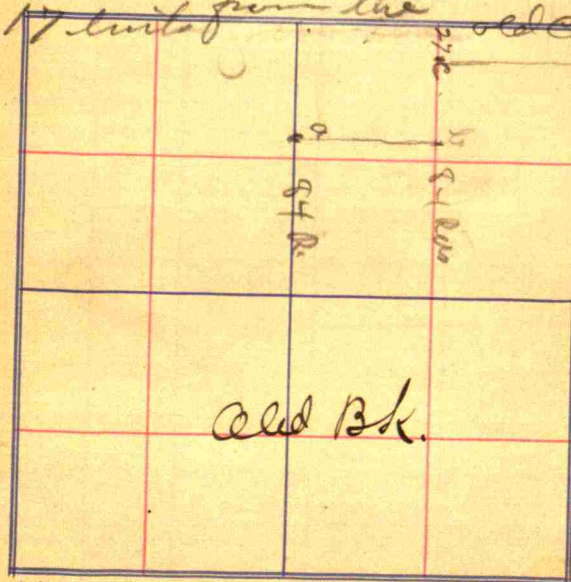 17 links from the old
27 R
a
b
84 R.
84 Rds
Old Bk.